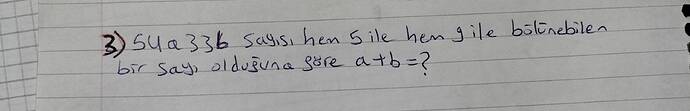 3) 54a33b sayısı hem 5 ile hem 9 ile bölünebilen
bir sayı olduğuna göre a+b=?